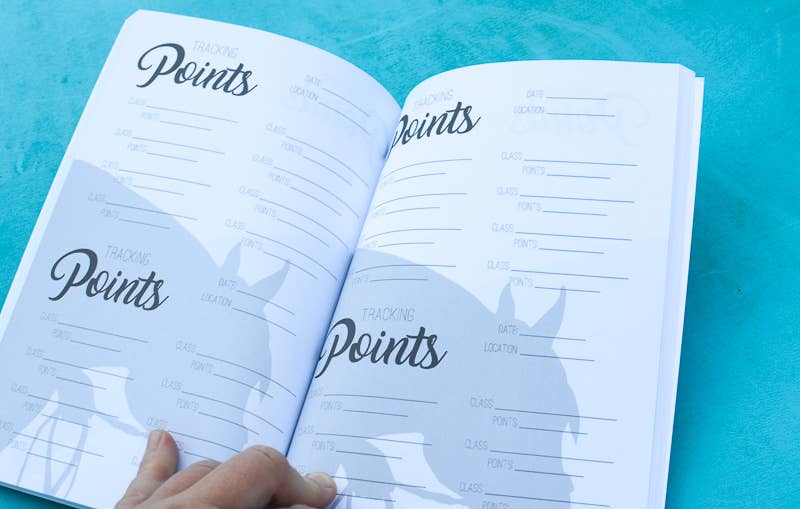 TRACKING
Points
DATE:
LOCATION:
CLASS:
POINTS:
CLASS:
POINTS:
CLASS:
POINTS:
CLASS:
POINTS:
CLASS:
POINTS:
CLASS:
POINTS:
CLASS:
POINTS:
CLASS:
POINTS:
TRACKING
Points
DATE:
LOCATION:
CLASS:
POINTS:
CLASS:
POINTS:
CLASS:
POINTS:
CLASS:
POINTS:
CLASS:
POINTS:
CLASS:
TRACKING
Points
DATE:
LOCATION:
CLASS:
POINTS:
CLASS:
POINTS:
CLASS:
POINTS:
CLASS:
POINTS:
TRACKING
Points
DATE:
LOCATION:
POINTS:
POINTS:
CLASS:
POINTS:
CLASS:
POINTS:
CLASS: